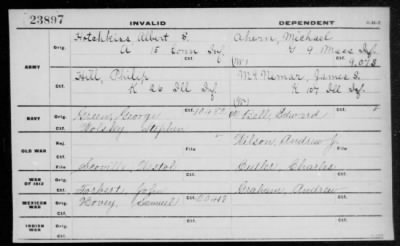 23897
INVALID
DEPENDENT
ARMY
Orig.
Hotchkiss Albert S.
A 15 Conn Inf
Ctf.
Orig.
Hill, Philip
K 26 Ill Inf
Ctf.
Ahern, Michael
G 9 Mass Inf
(W)
Ctf.
9,073
McNemar, James S.
K 107 Ill Inf
(W)
Ctf.
NAVY
Orig.
Green, George
Ctf.
Orig.
Stephen
Ctf.
Bell, Edward
Ctf.
OLD WAR
Rej.
File
Wilson, Andrew J.
File
Orig.
Scoville, Vestal
Ctf.
Butler, Charles
Ctf.
WAR OF 1812
Orig.
Forbert, John
Ctf.
Graham, Andrew
Ctf.
MEXICAN WAR
Orig.
Hovey, Samuel
Ctf.
INDIAN WAR
Orig.
Ctf.